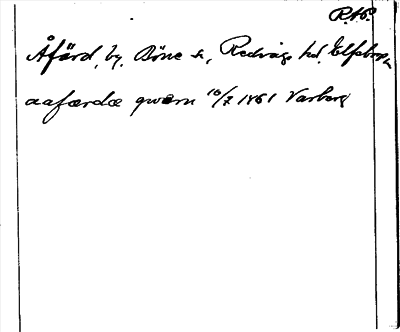 RAP.
Åfärd, by, Böne sn, Redvägs hd. Elfsborgs l.
aafærdæ qwærn 10/7 1461 Varberg